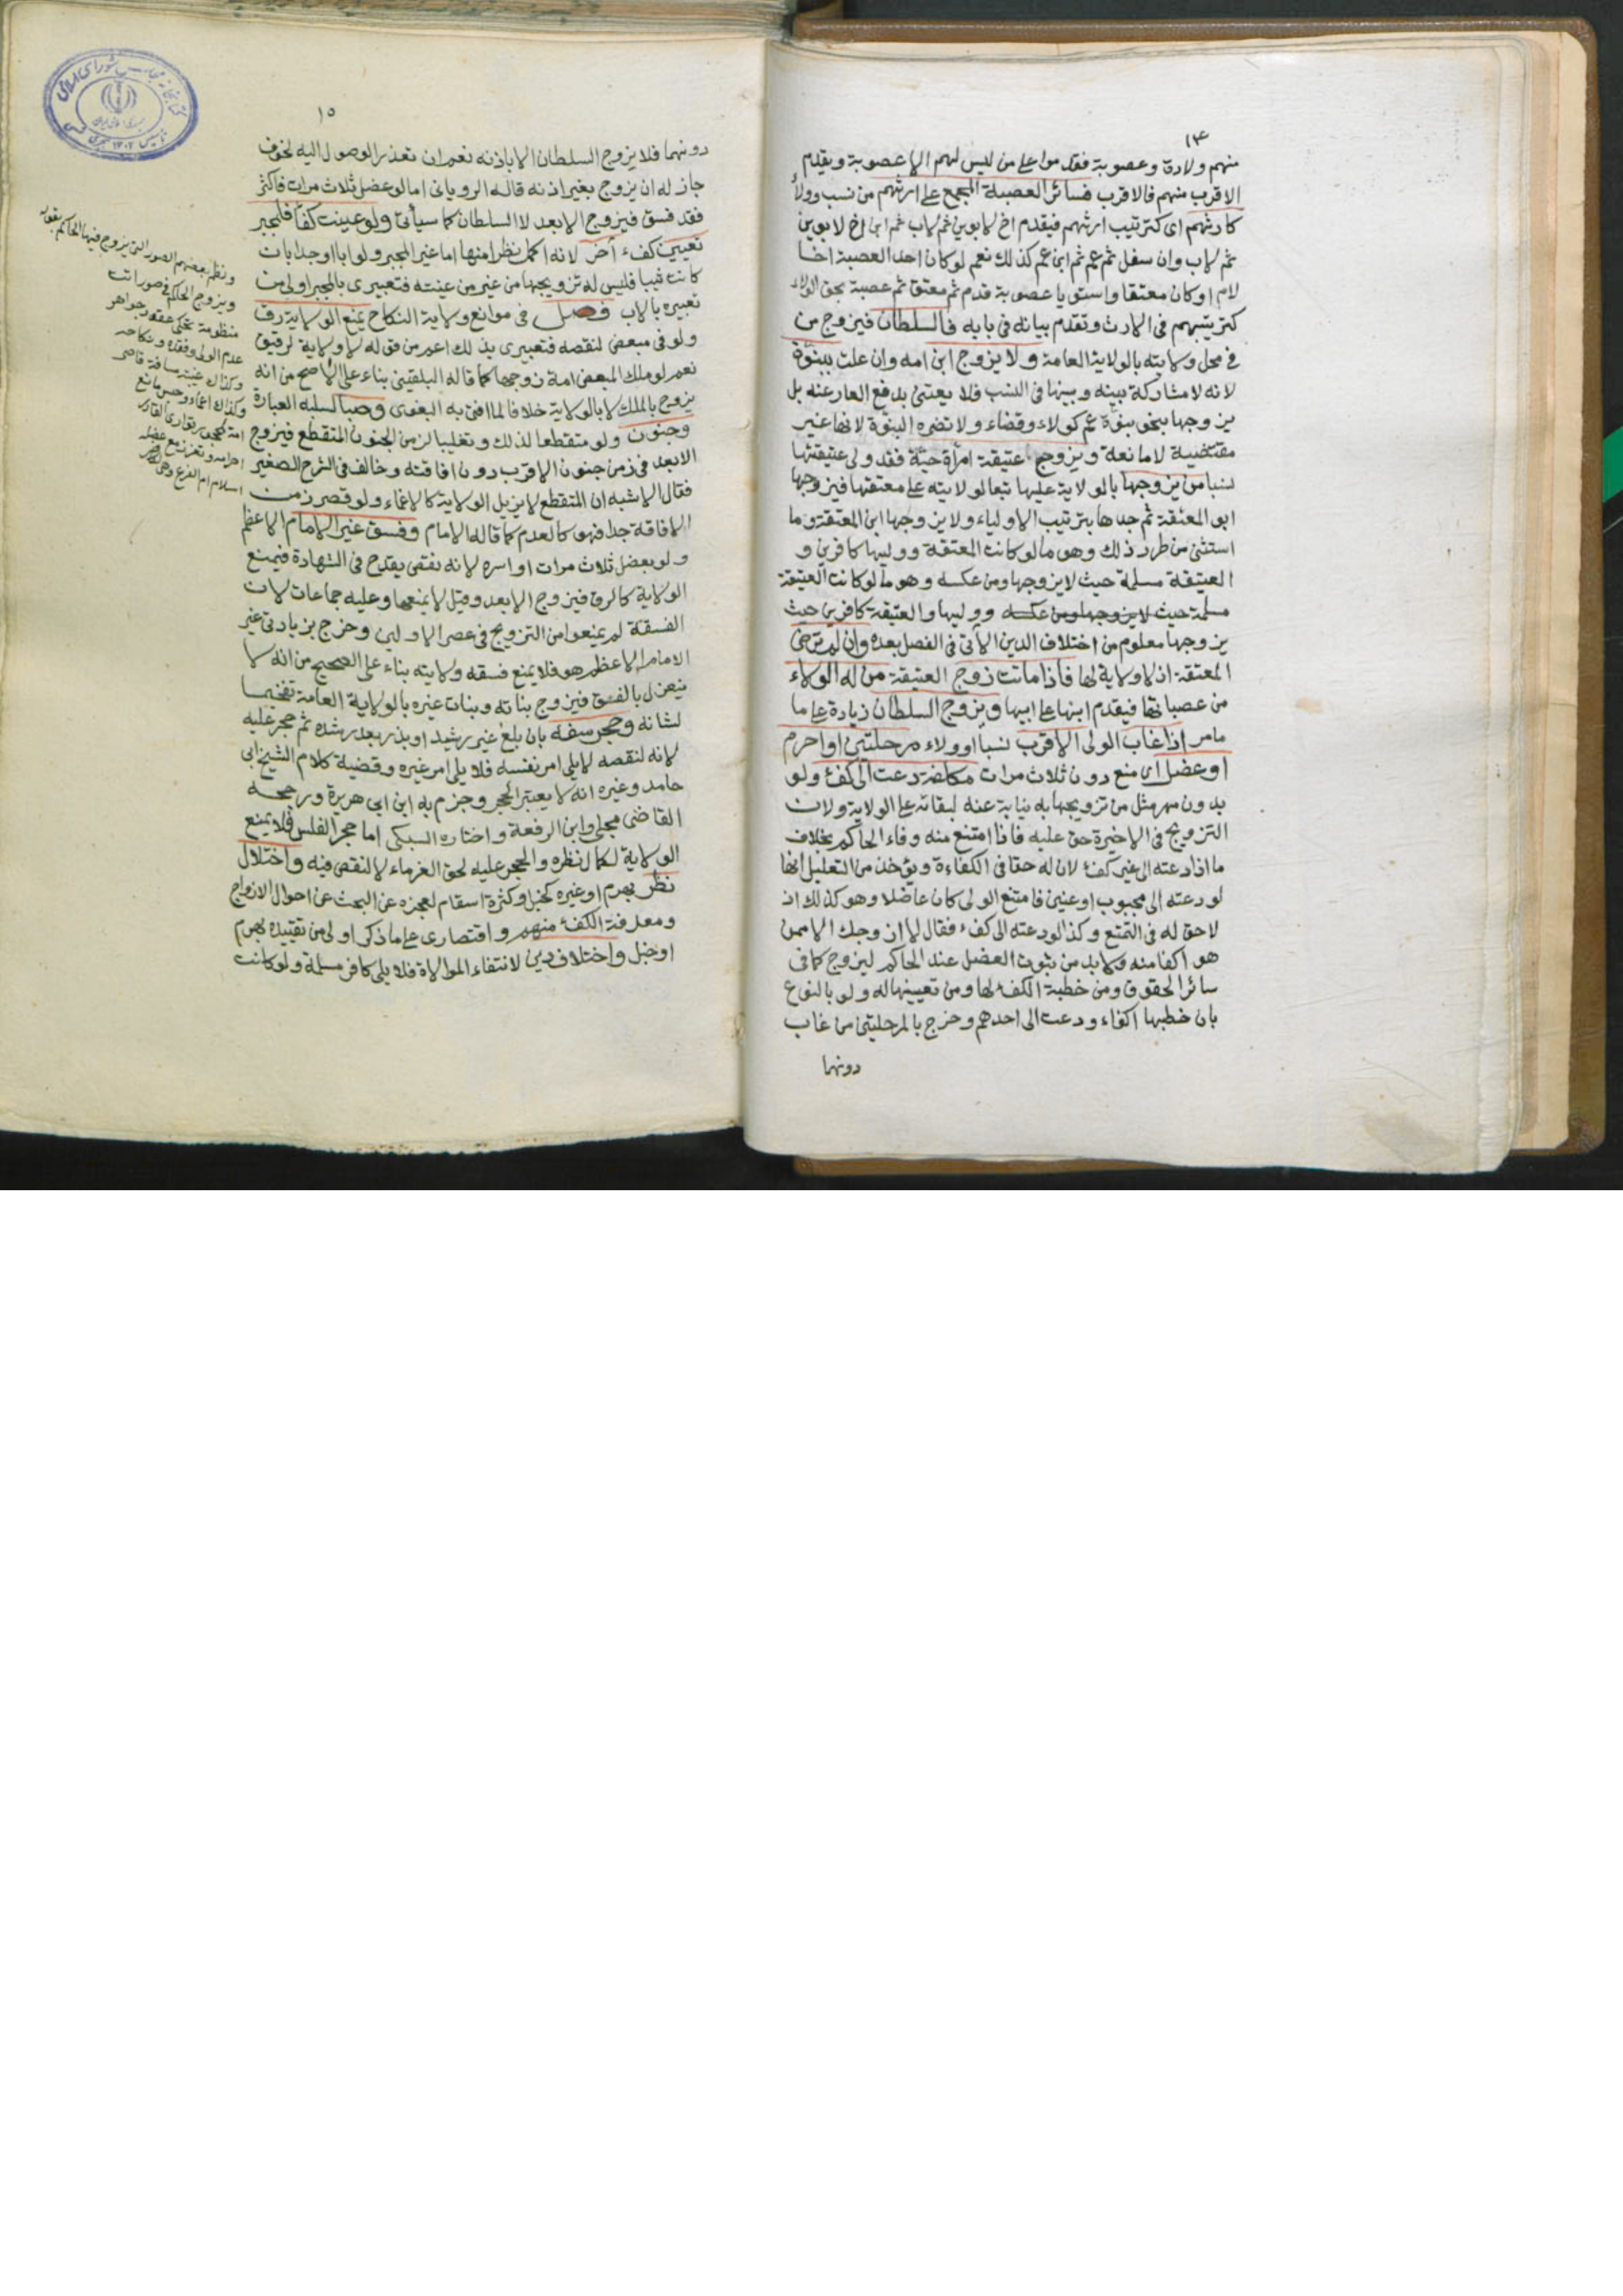 ١٤
منهم ولادة وعصوبة فقدموا على من ليس لهم الا عصوبة ويقدم
الاقرب منهم فالاقرب فسائر العصبة المجمع على ارثهم من نسب وولأ
كارثهم اى كترتيب ارثهم فيقدم اخ لابوين ثم لاب ثم ابن اخ لابوين
ثم لاب وان سفل ثم عم ثم ابن عم كذلك نعم لو كان احد العصبة اخا
لام او كان معتقا واستويا عصوبة قدم ثم معتق ثم عصبة بحق الولاء
كترتيبهم فى الارث وتقدم بيانه فى بابه فالسلطان فيزوج من
فى محل ولايته بالولاية العامة ولا يزوج ابن امه وان علت ببنوة
لانه لا مشاركة بينه وبينها فى النسب فلا يعتنى بدفع العار عنه بل
يزوجها بنحو بنوة عم كولاء وقضاء ولا تضره البنوة لانها غير
مقتضية لا مانعة ويزوج عتيقة امرأة حية فقد ولى عتيقتها
نسبا من يزوجها بالولاية عليها تبعا لولايته على معتقتها فيزوجها
ابو المعتقة ثم جدها بترتيب الاولياء ولا يزوجها ابن المعتقة وما
استثنى من طرد ذلك وهو ما لو كانت المعتقة ووليها كافرين و
العتيقة مسلمة حيث لا يزوجها ومن عكسه وهو ما لو كانت العتيقة
مسلمة حيث لا يزوجها ومن عكسه ووليها والعتيقة كافرين حيث
يزوجها معلوم من اختلاف الدين الأتى فى الفصل بعده وان لم ترض
المعتقة اذ لا ولاية لها فاذا ماتت زوج العتيقة من له الولاء
من عصباتها فيقدم ابنها على ابيها ويزوج السلطان زيادة على ما
مامر اذا غاب الولى الاقرب نسبا او ولاء مرحلتين او احرم
او عضل اى منع دون ثلاث مرات مكلفة دعت الى كفؤ ولو
بدون مهر مثل من تزويجها به نيابة عنه لبقائه على الولاية ولان
التزويج فى الاخيرة حق عليه فاذا امتنع منه وفاء الحاكم بخلاف
ما اذا دعته الى غير كفؤ لان له حقا فى الكفاءة ويؤخذ من التعليل انها
لو دعته الى مجبوب او عنين فامتنع الولى كان عاضلا وهو كذلك اذ
لا حق له فى التمتع وكذا لو دعته الى كفء فقال لا ازوجك الا ممن
هو اكفا منه ولا بد من ثبوت العضل عند الحاكم ليزوج كما فى
سائر الحقوق ومن خطبة الكفؤ لها ومن تعيينها له ولو بالنوع
بان خطبها اكفاء ودعت الى احدهم وخرج بالمرحلتين من غاب
دونهما
١٥
دونهما فلا يزوج السلطان الا باذنه نعم ان تعذر الوصول اليه لخوف
جاز له ان يزوج بغير اذنه قاله الرويانى اما لو عضل ثلاث مرات فاكثر
فقد فسق فيزوج الابعد لا السلطان كما سيأتى ولو عينت كفأ فللمجبر
تعيين كفء أخر لانه اكمل نظرا منها اما غير المجبر ولو ابا او جدا بان
كانت ثيبا فليس له تزويجها من غير من عينته فتعبيرى بالمجبر اولى من
تعبيره بالاب فصل فى موانع ولاية النكاح يمنع الولاية رق
ولو فى مبعض لنقصه فتعبيرى بذلك اعم من قوله لا ولاية لرقيق
نعم لو ملك المبعض امة زوجها كما قاله البلقينى بناء على الأصح من انه
يزوج بالملك لا بالولاية خلافا لما افتى به البغوى وصبا لسلبه العبارة
وجنون ولو متقطعا لذلك وتغليبا لزمن الجنون المتقطع فيزوج
الابعد فى زمن جنون الاقرب دون افاقته وخالف فى الشرح الصغير
فقال الاشبه ان المتقطع لا يزيل الولاية كالاغماء ولو قصر زمن
الافاقة جدا فهو كالعدم كما قاله الامام وفسق غير الامام الاعظم
ولو بعضل ثلاث مرات او اسره لانه نقص يقدح فى الشهادة فيمنع
الولاية كالرق فيزوج الابعد وقيل لا يمنعها وعليه جماعات لان
الفسقة لم يمنعوا من التزويج فى عصر الاولين وخرج بزيادتى غير
الامام الاعظم هو فلا يمنع فسقه ولايته بناء على الصحيح من انه لا
ينعزل بالفسق فيزوج بناته وبنات غيره بالولاية العامة تفخيما
لشانه وحجر سفه بان بلغ غير رشيد او بذر بعد رشده ثم حجر عليه
لانه لنقصه لا يلى امر نفسه فلا يلى امر غيره وقضية كلام الشيخ ابى
حامد وغيره انه لا يعتبر الحجر وجزم به ابن ابى هريرة ورجحه
القاضى مجلى وابن الرفعة واختاره السبكى اما حجر الفلس فلا يمنع
الولاية لكمال نظره والحجر عليه لحق الغرماء لا لنقص فيه واختلال
نظر بهرم او غيره كخبل وكثرة اسقام لعجزه عن البحث عن احوال الازواج
ومعرفة الكفؤ منهم واقتصارى على ما ذكر اولى من تقييده بهرم
او خبل واختلاف دين لانتفاء الموالاة فلا يلى كافر مسلمة ولو كانت
ونظم بعضهم الصور التى يزوج فيها الحاكم بقوله
ويزوج الحاكم فى صورات
منظومة تحكى عقود جواهر
عدم الولى وفقده ونكاحه
وكذاك غيبته مسافة قاصر
وكذاك اغماء وحبس مانع
امة لمحجور توارى القادر
احرامه وتعزز مع عضله
اسلام ام الفرع وهى لكافر
كتابخانه مجلس شوراى اسلامى